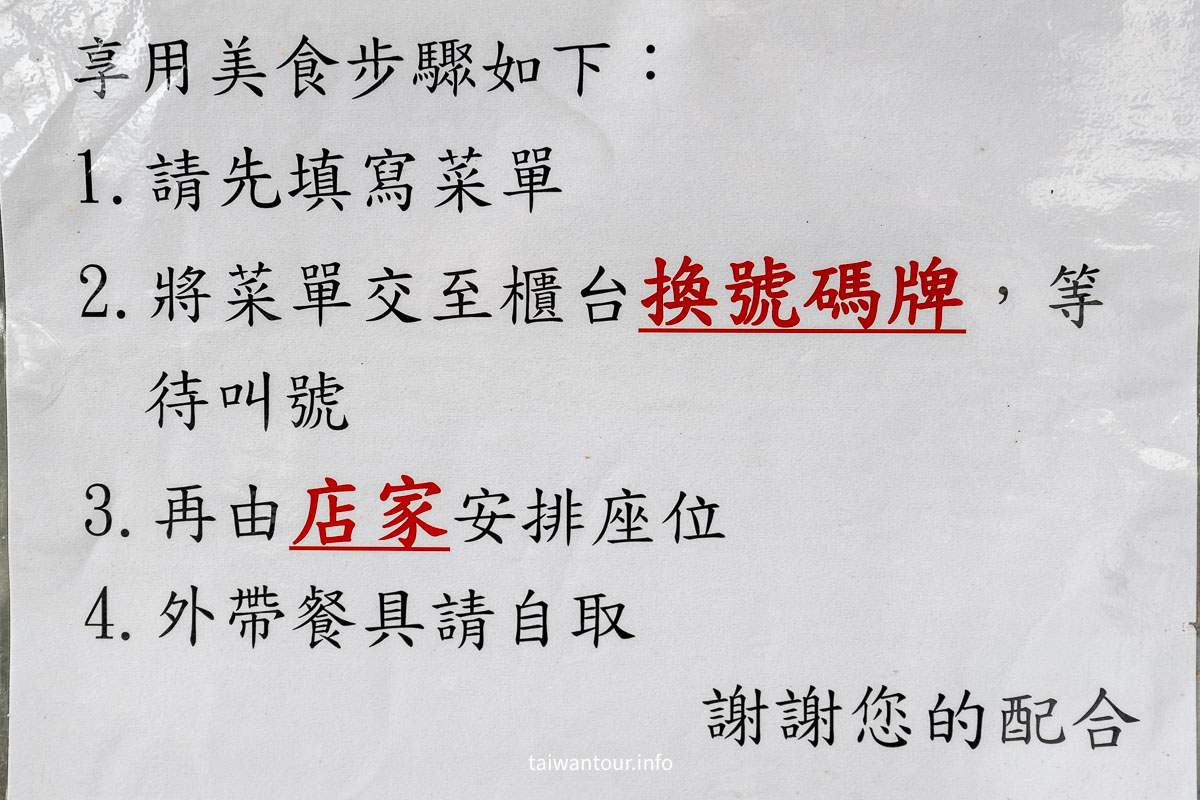 享用美食步驟如下：
1.請先填寫菜單
2.將菜單交至櫃台換號碼牌，等
待叫號
3.再由店家安排座位
4.外帶餐具請自取
謝謝您的配合
taiwantour.info